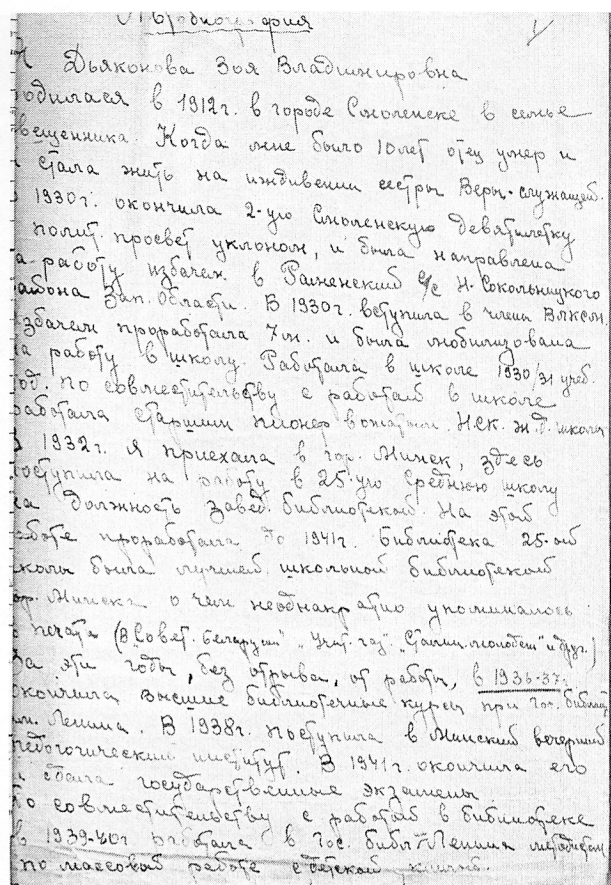 Автобиография
Я Дьяконова Зоя Владимировна
родилася в 1912г. в городе Смоленске в семье
священника. Когда мне было 10 лет отец умер и
стала жить на иждивении сестры Веры - служащей.
В 1930г. окончила 2-ую Смоленскую девятилетку
с полит. просвет уклоном, и была направлена
на работу избачем. в с/с Н-Сокольницкого
района Зап. Области. В 1930г. вступила в члены ВЛКСМ.
Избачем проработала 7 м. и была мобилизована
на работу в школу. Работала в школе 1930/31 учеб.
год. По совместительству с работай в школе
работала старшим пионер вожатым Н.ск. ж.д. школы
В 1932г. я приехала в гор. Минск, здесь
поступила на работу в 25-ую среднюю школу
на должность завед. библиотекой. На этой
работе проработала до 1941г. Библиотека 25-ой
школы была лучшей школьной библиотекой
гор. Минска о чем неоднакратно упоминалось
в печати (В "Совет. Беларусии" "Учит. газ", "Сталин. молодеж" и друг.)
За эти годы, без отрыва, от работы, в 1936-37г.
окончила высшие библиотечные курсы при Гос. библиот.
им. Ленина. В 1938г. поступила в Минский вечерний
педогогический институт. В 1941г. окончила его
и сдала государственные экзамены
По совместительству с работай в библиотеке
в 1939-40г работала в Гос. библ Ленина методистом
по массовай работе с детской книгой.